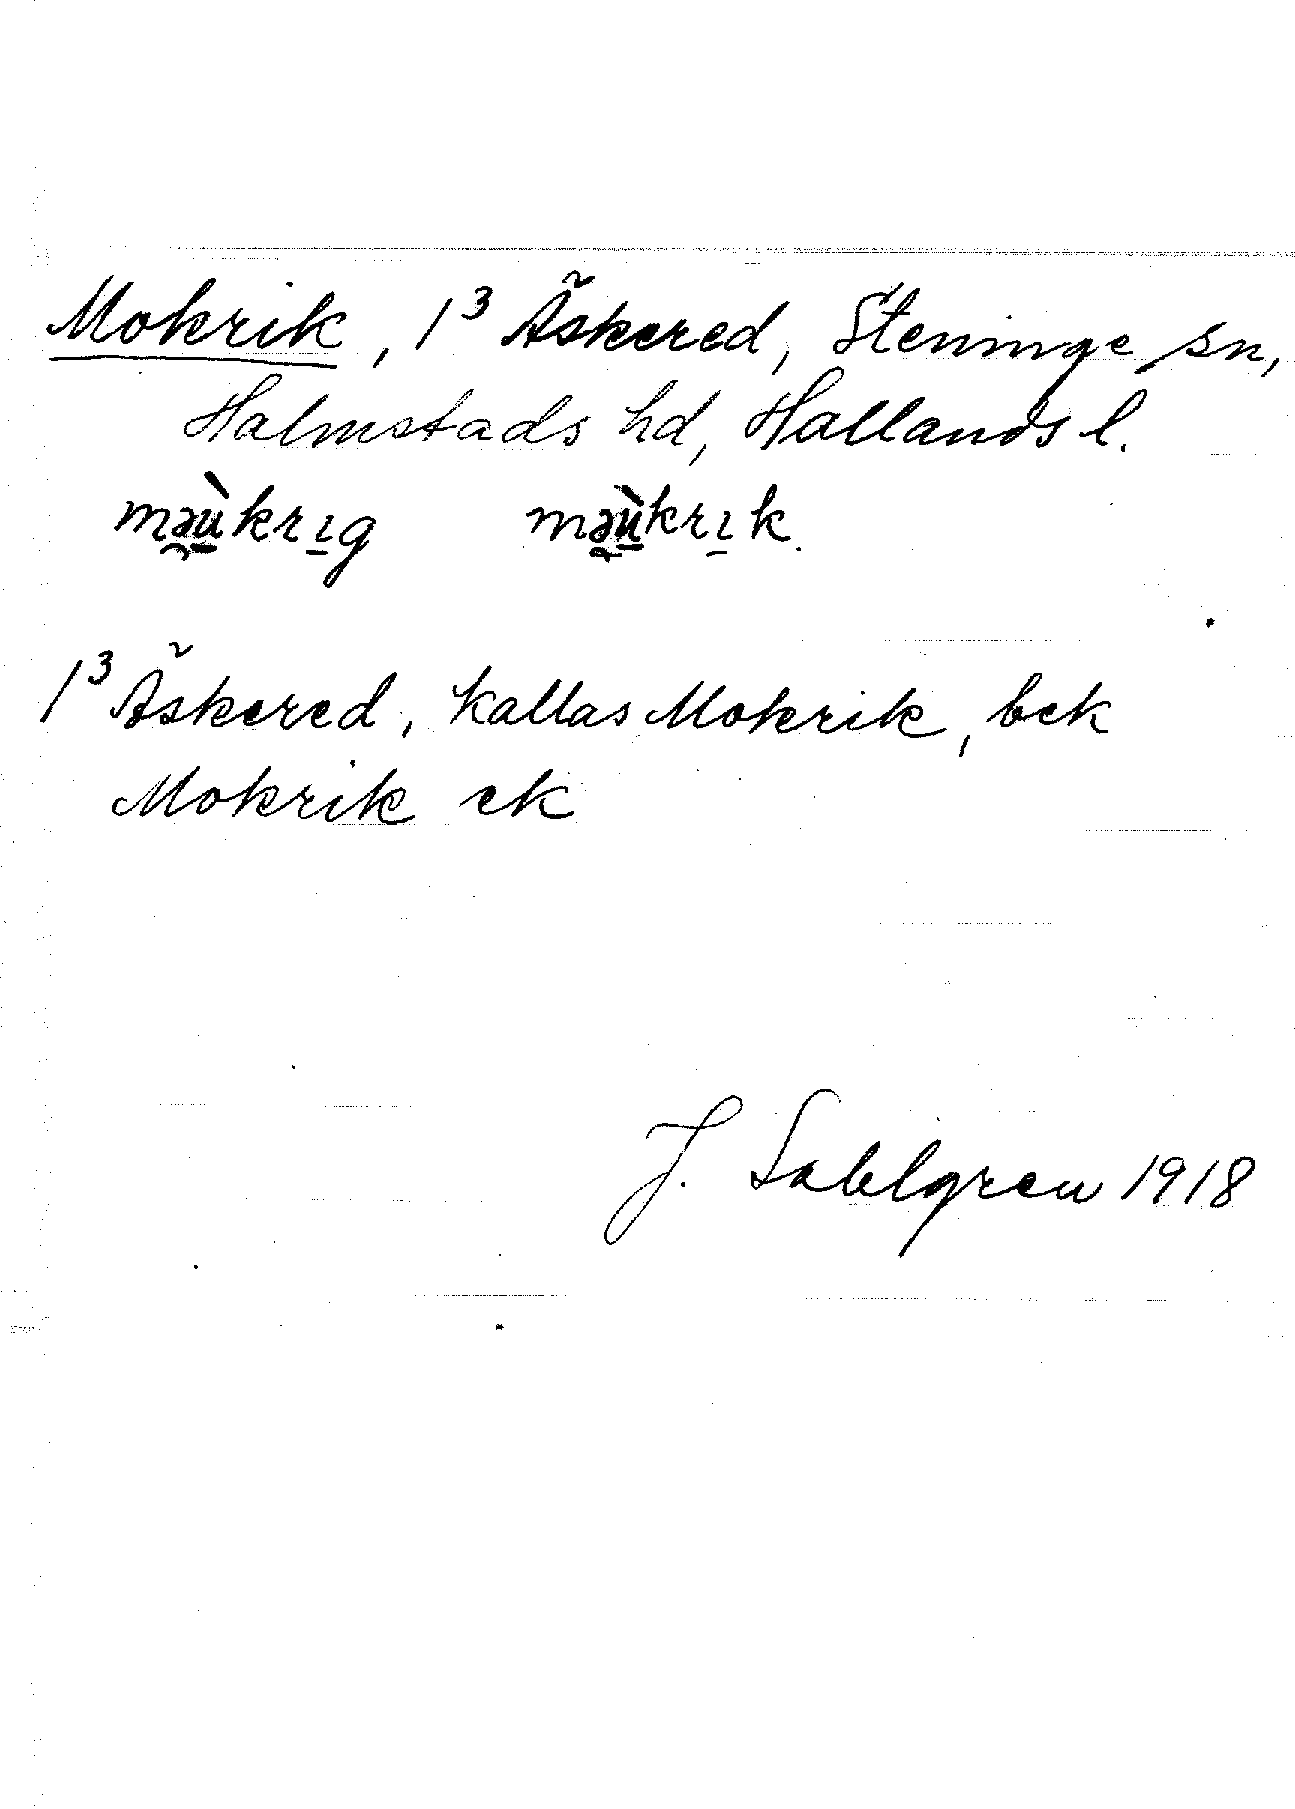 Mokrik, 1³ Äskered, Steninge sn,
Halmstads hd, Hallands l.
mə̯ùkrı̱g mə̯ùkrı̱k.
1³ Äskered, kallas Mokrik, bek
Mokrik ek
J. Sahlgren 1918